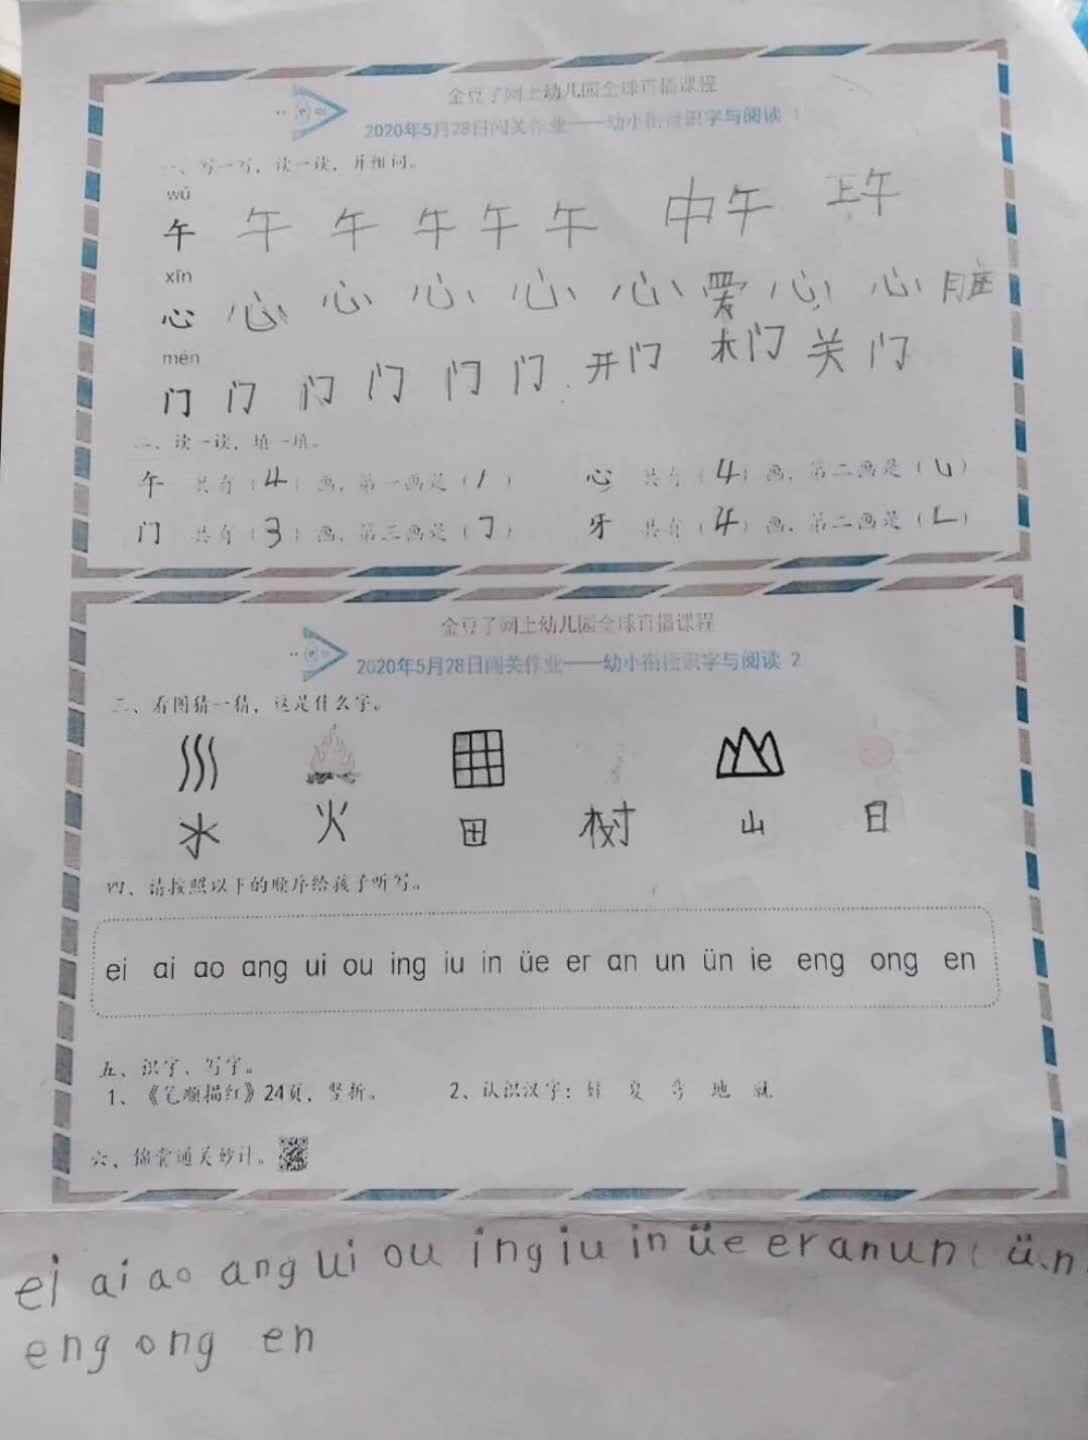 金豆子网上幼儿园全球直播课程
2020年5月28日闯关作业——幼小衔接识字与阅读 1
一、写一写，读一读，并组词。
wǔ
午 午 午 午 午 午 中午 上午
xīn
心 心 心 心 心 心 爱心 心脏
mén
门 门 门 门 门 门 开门 木门 关门
二、读一读，填一填。
午 共有（4）画，第一画是（丿） 心 共有（4）画，第二画是（㇃）
门 共有（3）画，第三画是（㇆） 牙 共有（4）画，第二画是（㇄）
金豆子网上幼儿园全球直播课程
2020年5月28日闯关作业——幼小衔接识字与阅读 2
三、看图猜一猜，这是什么字。
水 火 田 树 山 日
四、请按照以下的顺序给孩子听写。
ei ai ao ang ui ou ing iu in üe er an un ün ie eng ong en
五、识字、写字。
1、《笔顺描红》24页，竖折。 2、认识汉字： 地 就
六、锦囊通关妙计。
ei ai ao ang ui ou ing iu in üe er an un ün
eng ong en